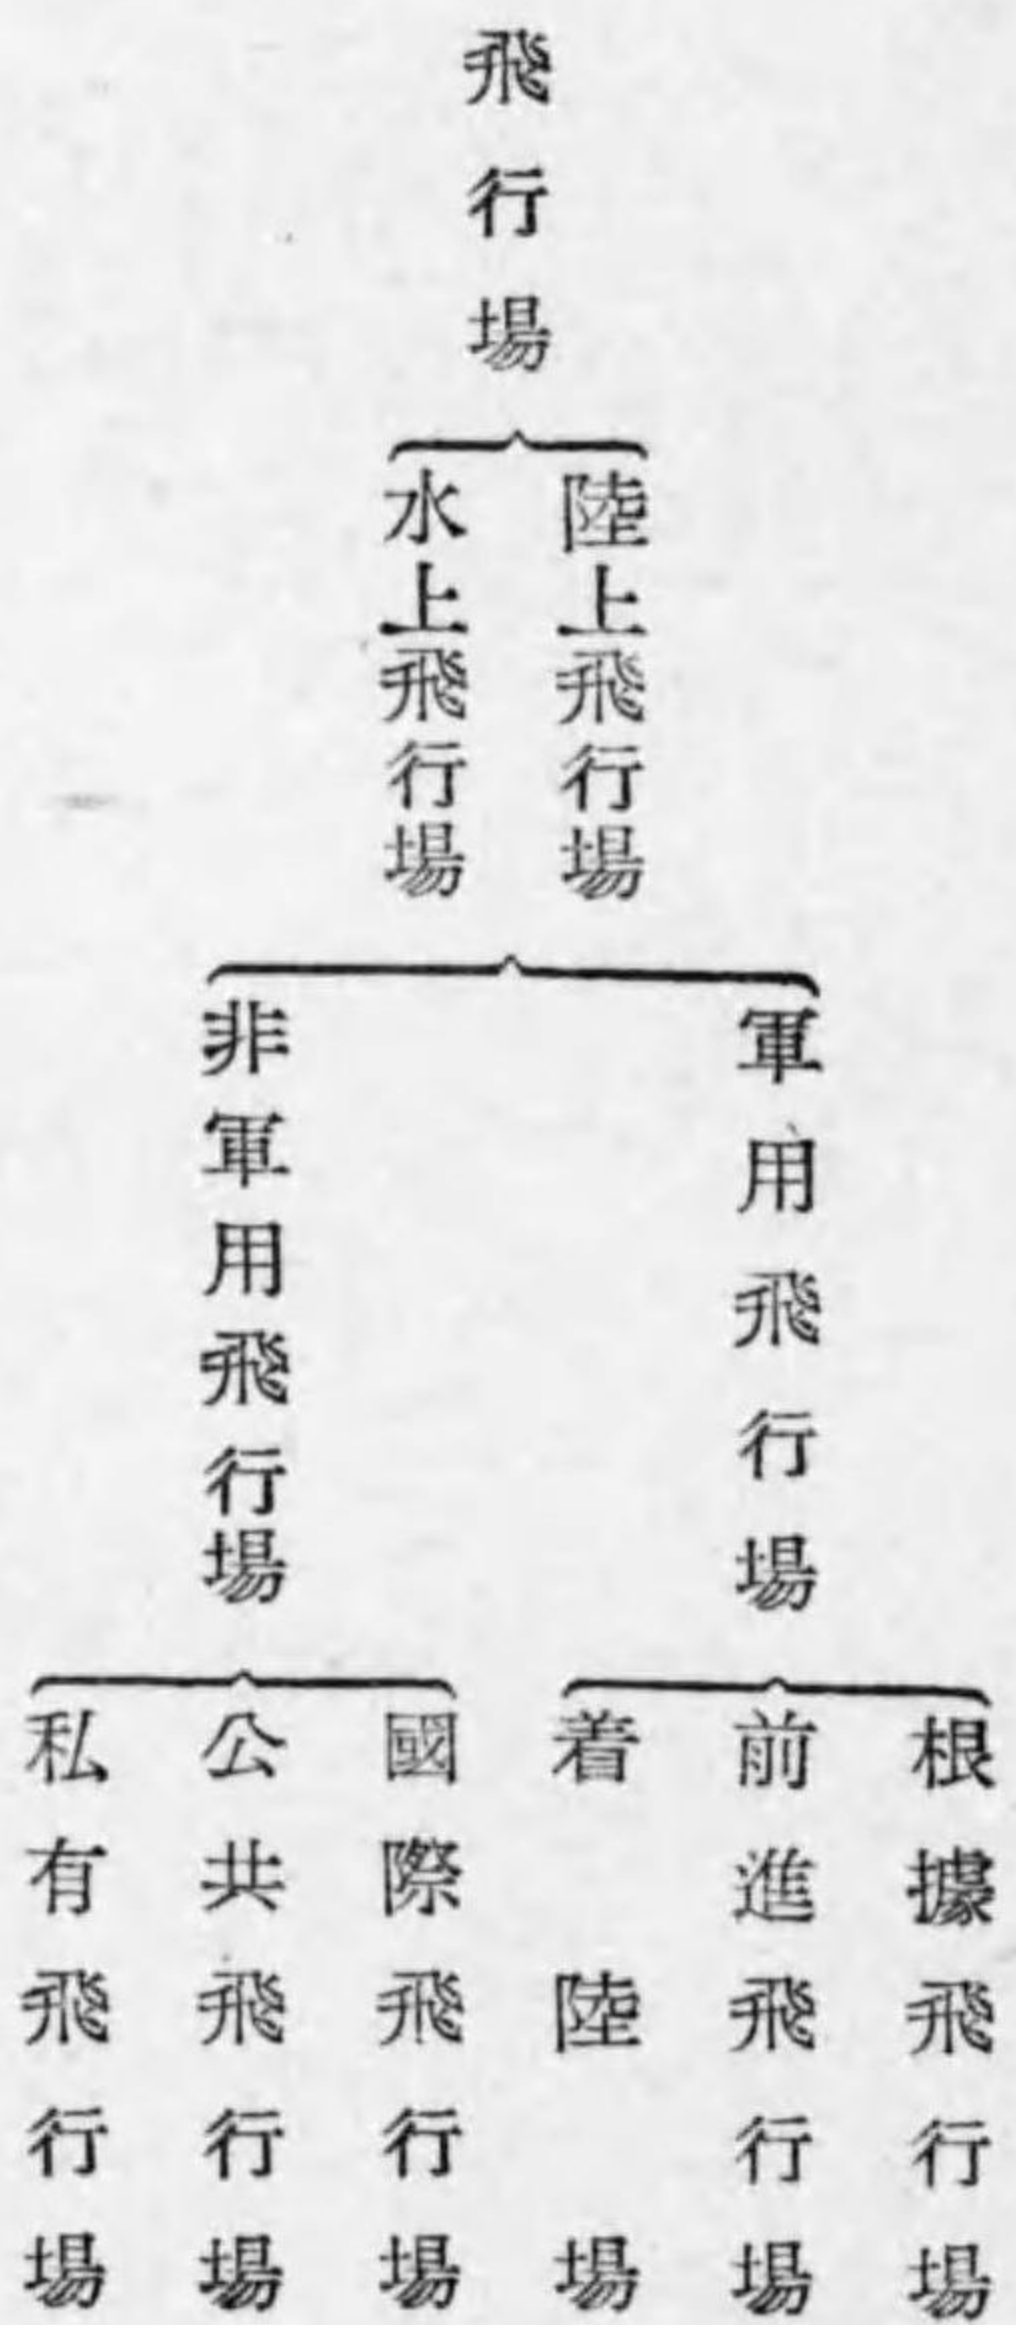 飛行場
陸上飛行場
水上飛行場
軍用飛行場
非軍用飛行場
根據飛行場
前進飛行場
着陸場
國際飛行場
公共飛行場
私有飛行場